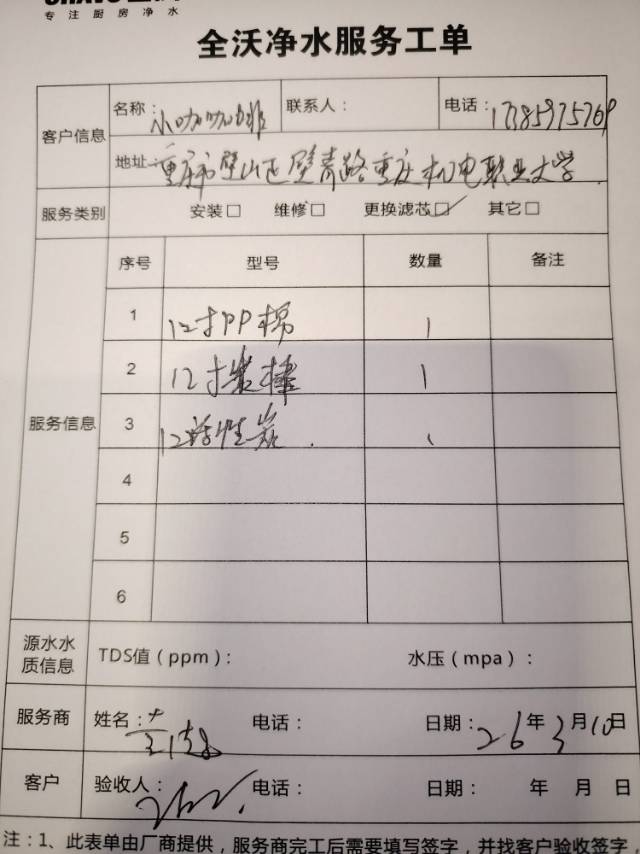 专注厨房净水
全沃净水服务工单
客户信息
名称：小咖咖啡 联系人： 电话：17385975769
地址：重庆市璧山区璧青路重庆机电职业大学
服务类别 安装□ 维修□ 更换滤芯☑ 其它□
服务信息
序号 型号 数量 备注
1 12寸PP棉 1
2 12寸炭棒 1
3 12活性炭 1
4
5
6
源水水质信息 TDS值（ppm）： 水压（mpa）：
服务商 姓名： 电话： 日期：26年3月10日
客户 验收人： 电话： 日期： 年 月 日
注：1、此表单由厂商提供，服务商完工后需要填写签字，并找客户验收签字，